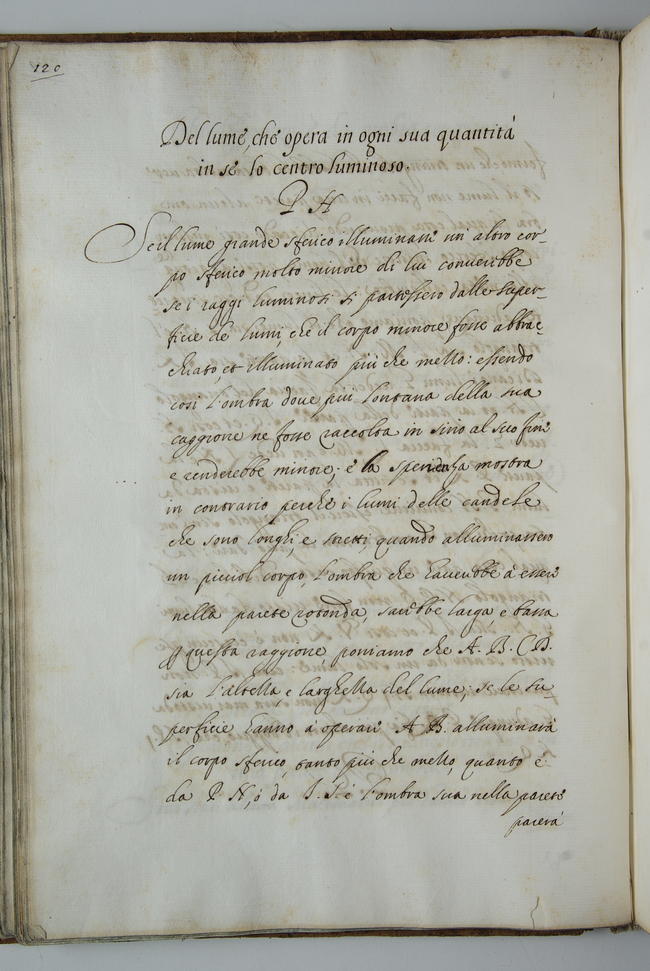 120
Del lume, che opera in ogni sua quantità
in sè lo centro luminoso.
P. H
Se il lume grande sferico illuminassi un altro cor-
po sferico molto minore di lui converrebbe
se i raggi luminosi si partissero dalle super-
ficie de lumi che il corpo minore fosse abbrac
chiato, et illuminato più che mezzo: essendo
cosi l'ombra dove più lontana della sua
caggione ne fosse raccolta in sino al suo fine
e renderebbe minore; è la sperienza mostra
in contrario perche i lumi delle candele
che sono longhi, e stretti, quando alluminassero
un piccol corpo, l'ombra che haverebbe à esser
nella parete rotonda, sarebbe larga, e bassa
questa raggione, poniamo che A. B. C D.
sia l'altezza, e larghezza del lume; se le su
perficie hanno à operare A B. alluminarà
il corpo sferico, tanto più che mezzo, quanto è
da P. N, ò da I. S. è l'ombra sua nella parete
parerà